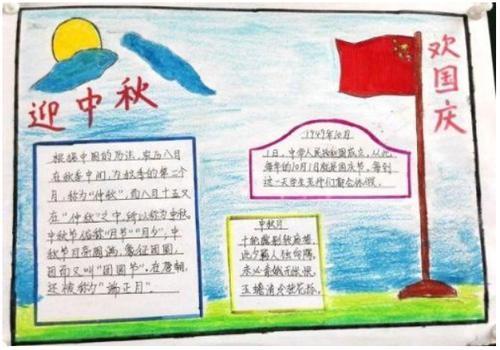 迎中秋
欢国庆
根据中国的历法,农历八月
在秋季中间,为秋季的第二个
月,称为“仲秋”,而八月十五又
在“仲秋”之中,所以称为中秋。
中秋节俗称“月节”“月夕”,中
秋节月亮圆满,象征团圆,
因而又叫“团圆节”。在唐朝,
还被称为“端正月”。
1949年10月
1日,中华人民共和国成立,从此,
每年的10月1日就是国庆节。每到
这一天学生
中秋月
十轮霜影转庭梧,
此夕羁人独向隅。
未必素娥无怅恨,
玉蟾清冷桂花孤。